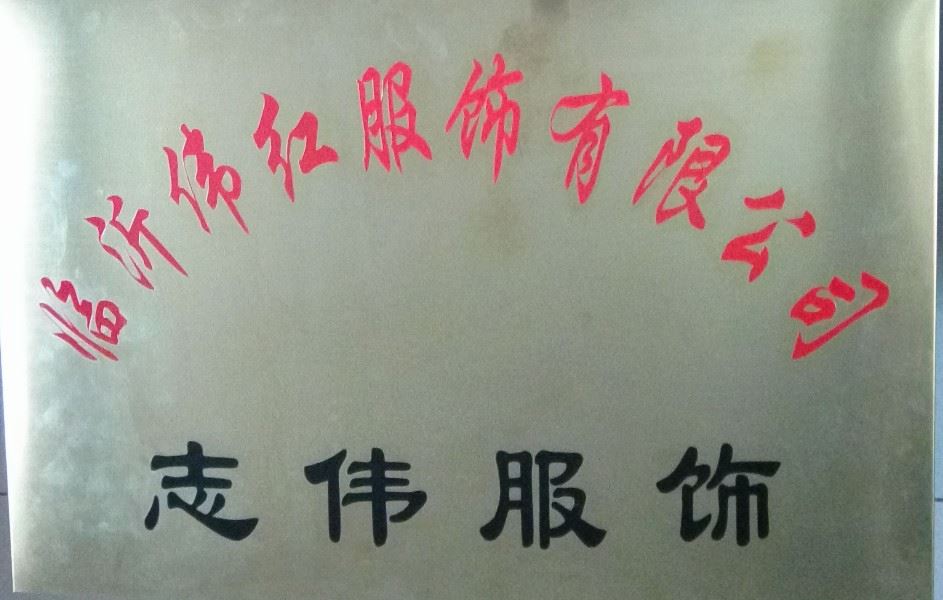 临沂伟红服饰有限公司
志伟服饰